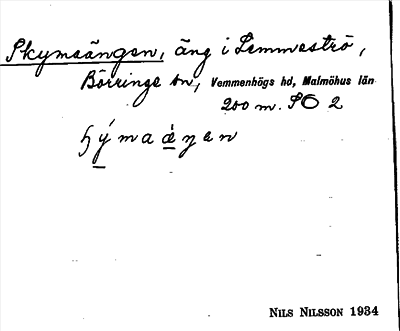 Skymsängen, äng i Lemmeströ,
Börringe sn, Vemmenhögs hd, Malmöhus län
200 m. SO 2
NILS NILSSON 1934